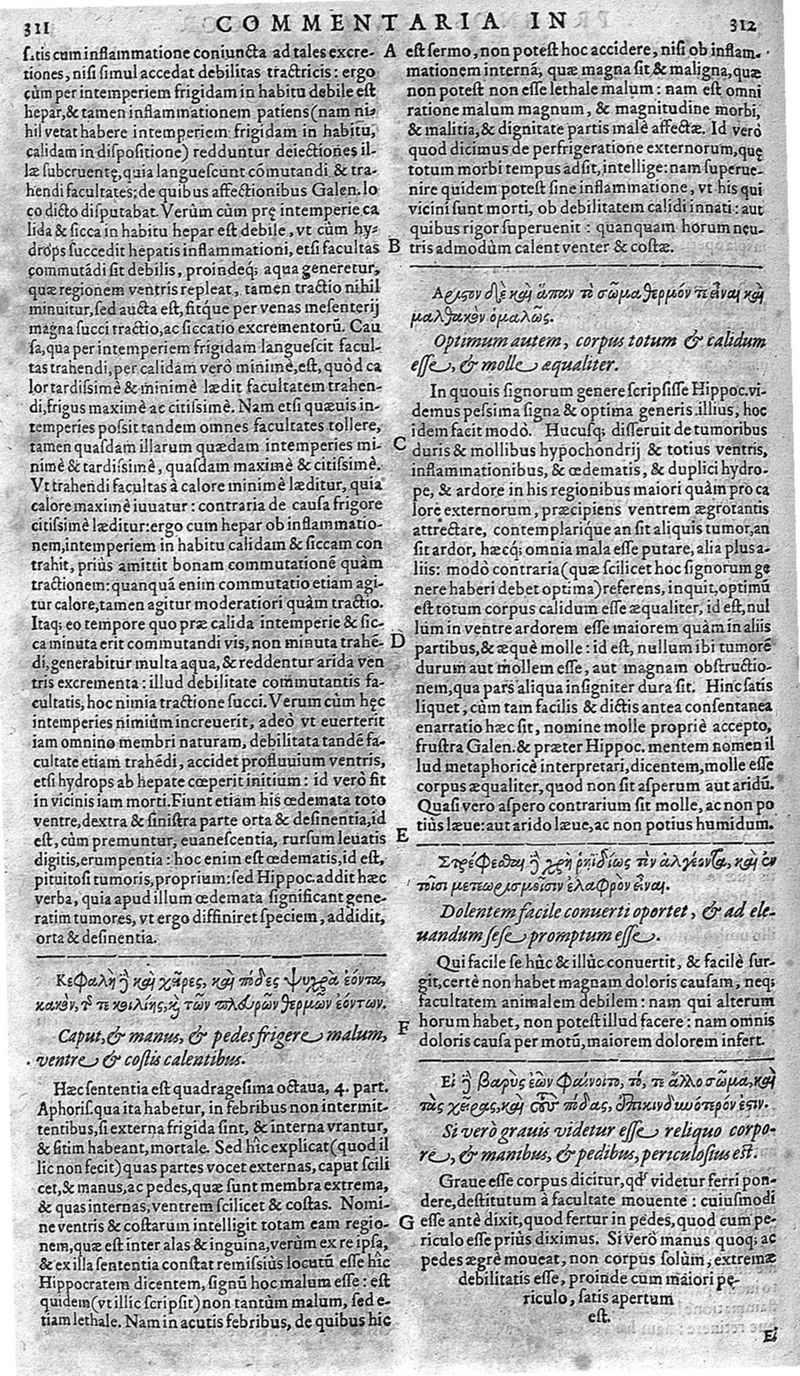 311 COMMENTARIA IN 312
satis cum inflammatione coniuncta ad tales excre-
tiones, nisi simul accedat debilitas tractricis: ergo
cùm per intemperiem frigidam in habitu debile est
hepar, & tamen inflammationem patiens (nam ni-
hil vetat habere intemperiem frigidam in habitu,
calidam in dispositione) redduntur deiectiones il-
læ subcruentę, quia languescunt cōmutandi & tra-
hendi facultates; de quibus affectionibus Galen. lo
co dicto disputabat. Verùm cùm prę intemperie ca
lida & sicca in habitu hepar est debile, vt cùm hy-
drops succedit hepatis inflammationi, etsi facultas
commutādi sit debilis, proindeq; aqua generetur,
quæ regionem ventris repleat, tamen tractio nihil
minuitur, sed aucta est, fitque per venas mesenterij
magna succi tractio, ac siccatio excrementorū. Cau
sa, qua per intemperiem frigidam languescit facul-
tas trahendi, per calidam verò minimè, est, quòd ca
lor tardissimè & minimè lædit facultatem trahen-
di, frigus maximè ac citissimè. Nam etsi quæuis in-
temperies possit tandem omnes facultates tollere,
tamen quasdam illarum quædam intemperies mi-
nimè & tardissimè, quasdam maximè & citissimè.
Vt trahendi facultas à calore minimè læditur, quia
calore maximè iuuatur: contraria de causa frigore
citissimè læditur: ergo cum hepar ob inflammatio-
nem, intemperiem in habitu calidam & siccam con
trahit, priùs amittit bonam commutationē quàm
tractionem: quanquā enim commutatio etiam agi-
tur calore, tamen agitur moderatiori quàm tractio.
Itaq; eo tempore quo præ calida intemperie & sic-
ca minuta erit commutandi vis, non minuta trahē-
di, generabitur multa aqua, & reddentur arida ven
tris excrementa: illud debilitate commutantis fa-
cultatis, hoc nimia tractione succi. Verum cùm hęc
intemperies nimiùm increuerit, adeò vt euerterit
iam omnino membri naturam, debilitata tandē fa-
cultate etiam trahēdi, accidet profluuium ventris,
etsi hydrops ab hepate cœperit initium: id verò fit
in vicinis iam morti. Fiunt etiam his œdemata toto
ventre, dextra & sinistra parte orta & desinentia, id
est, cùm premuntur, euanescentia, rursum leuatis
digitis, erumpentia: hoc enim est œdematis, id est,
pituitosi tumoris, proprium: sed Hippoc. addit hæc
verba, quia apud illum œdemata significant gene-
ratim tumores, vt ergo diffiniret speciem, addidit,
orta & desinentia.
Κεφαλὴ ἢ καὶ χεῖρες, καὶ πόδες ψυχρὰ ἐόντα,
κακὸν, τ τε κοιλίης, καὶ τῶν πλευρῶν θερμῶν ἐόντων.
Caput, & manus, & pedes frigere malum,
ventre & costis calentibus.
Hæc sententia est quadragesima octaua, 4. part.
Aphoris. qua ita habetur, in febribus non intermit-
tentibus, si externa frigida sint, & interna vrantur,
& sitim habeant, mortale. Sed hîc explicat (quod il
lic non fecit) quas partes vocet externas, caput scili
cet, & manus, ac pedes, quæ sunt membra extrema,
& quas internas, ventrem scilicet & costas. Nomi-
ne ventris & costarum intelligit totam eam regio-
nem, quæ est inter alas & inguina, verùm ex re ipsa,
& ex illa sententia constat remissiùs locutū esse hîc
Hippocratem dicentem, signū hoc malum esse: est
quidem (vt illic scripsit) non tantùm malum, sed e-
tiam lethale. Nam in acutis febribus, de quibus hic
A
B
C
D
E
F
G
est sermo, non potest hoc accidere, nisi ob inflam-
mationem internā, quæ magna sit & maligna, quæ
non potest non esse lethale malum: nam est omni
ratione malum magnum, & magnitudine morbi,
& malitia, & dignitate partis malè affectæ. Id verò
quod dicimus de perfrigeratione externorum, quę
totum morbi tempus adsit, intellige: nam superue-
nire quidem potest sine inflammatione, vt his qui
vicini sunt morti, ob debilitatem calidi innati: aut
quibus rigor superuenit: quanquam horum neu-
tris admodùm calent venter & costæ.
Αριστον δὲ καὶ ἅπαν τὸ σῶμα θερμόν τε εἶναι καὶ
μαλθακὸν ὁμαλῶς.
Optimum autem, corpus totum & calidum
esse, & molle æqualiter.
In quouis signorum genere scripsisse Hippoc. vi-
demus pessima signa & optima generis illius, hoc
idem facit modò. Hucusq; disseruit de tumoribus
duris & mollibus hypochondrij & totius ventris,
inflammationibus, & œdematis, & duplici hydro-
pe, & ardore in his regionibus maiori quàm pro ca
lore externorum, præcipiens ventrem ægrotantis
attrectare, contemplarique an sit aliquis tumor, an
sit ardor, hæcq; omnia mala esse putare, alia plus a-
liis: modò contraria (quæ scilicet hoc signorum ge
nere haberi debet optima) referens, inquit, optimū
est totum corpus calidum esse æqualiter, id est, nul
lùm in ventre ardorem esse maiorem quàm in aliis
partibus, & æquè molle: id est, nullum ibi tumorē
durum aut mollem esse, aut magnam obstructio-
nem, qua pars aliqua insigniter dura sit. Hinc satis
liquet, cùm tam facilis & dictis antea consentanea
enarratio hæc sit, nomine molle propriè accepto,
frustra Galen. & præter Hippoc. mentem nomen il
lud metaphoricè interpretari, dicentem, molle esse
corpus æqualiter, quod non sit asperum aut aridū.
Quasi vero aspero contrarium sit molle, ac non po
tiùs læue: aut arido læue, ac non potius humidum.
Στρέφεσθαι ἢ χρὴ ῥηϊδίως τὸν ἀλγέοντα, καὶ ἐν
τοῖσι μετεωρισμοῖσιν ἐλαφρὸν εἶναι.
Dolentem facile conuerti oportet, & ad ele-
uandum sese promptum esse.
Qui facile se hûc & illûc conuertit, & facilè sur-
git, certè non habet magnam doloris causam, neq;
facultatem animalem debilem: nam qui alterum
horum habet, non potest illud facere: nam omnis
doloris causa per motū, maiorem dolorem infert.
Εἰ ἢ βαρὺς ἐὼν φαίνοιτο, τό, τε ἄλλο σῶμα, καὶ
τὰς χεῖρας, καὶ τοὺς πόδας, ἐπικινδυνότερον ἐστιν.
Si verò grauis videtur esse reliquo corpo-
re, & manibus, & pedibus, periculosius est.
Graue esse corpus dicitur, qd' videtur ferri pon-
dere, destitutum à facultate mouente: cuiusmodi
esse antè dixit, quod fertur in pedes, quod cum pe-
riculo esse priùs diximus. Si verò manus quoq; ac
pedes ægrè moueat, non corpus solùm, extremæ
debilitatis esse, proinde cum maiori pę-
riculo, satis apertum
est.
Ei